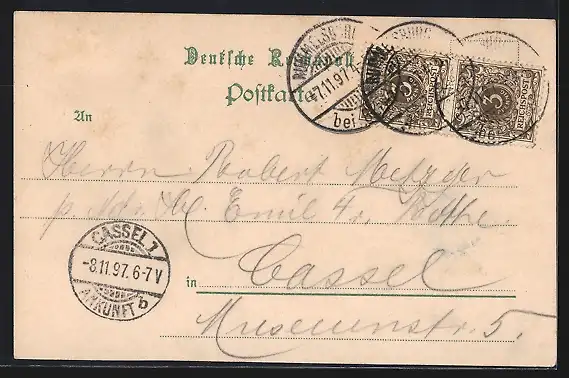 Deutsche Reichspost
Postkarte
7.11.97
bei
REICHSPOST
3
REICHSPOST
3
An
Herrn Robert Metzger
p. Adr. H. Emil
in Cassel
Museumstr. 5.
CASSEL 1
-8.11.97. 6-7V
ANKUNFT b